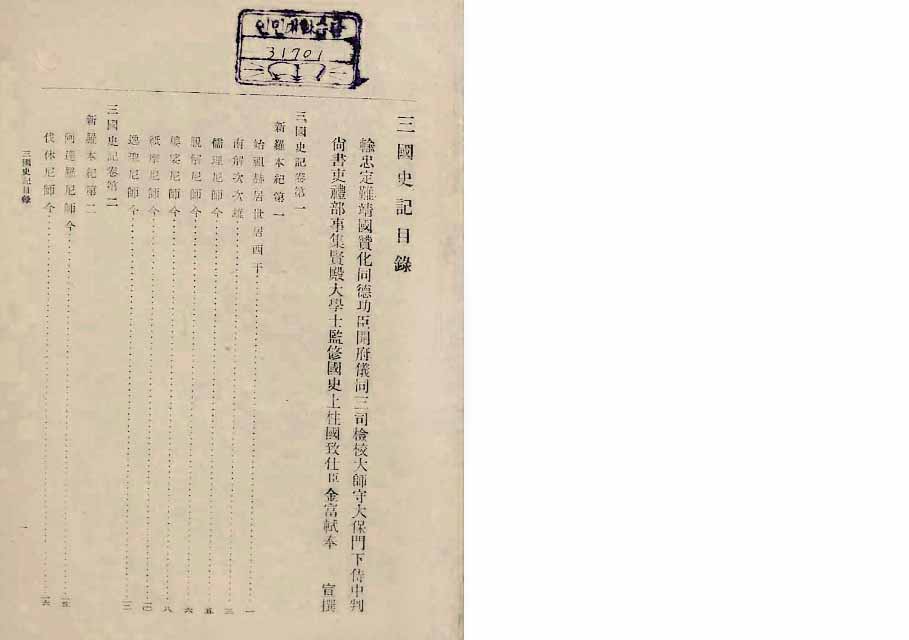 인민대학습당
31701
三國史記目錄
輸忠定難靖國贊化同德功臣開府儀同三司檢校大師守大保門下侍中判
尙書吏禮部事集賢殿大學士監修國史上柱國致仕臣金富軾奉 宣撰
三國史記卷第一
新羅本紀第一
始祖赫居世居西干 一
南解次次雄 三
儒理尼師今 五
脫解尼師今 六
婆娑尼師今 八
祇摩尼師今
逸聖尼師今
三國史記卷第二
新羅本紀第二
阿達羅尼師今
伐休尼師今
三國史記目錄
一